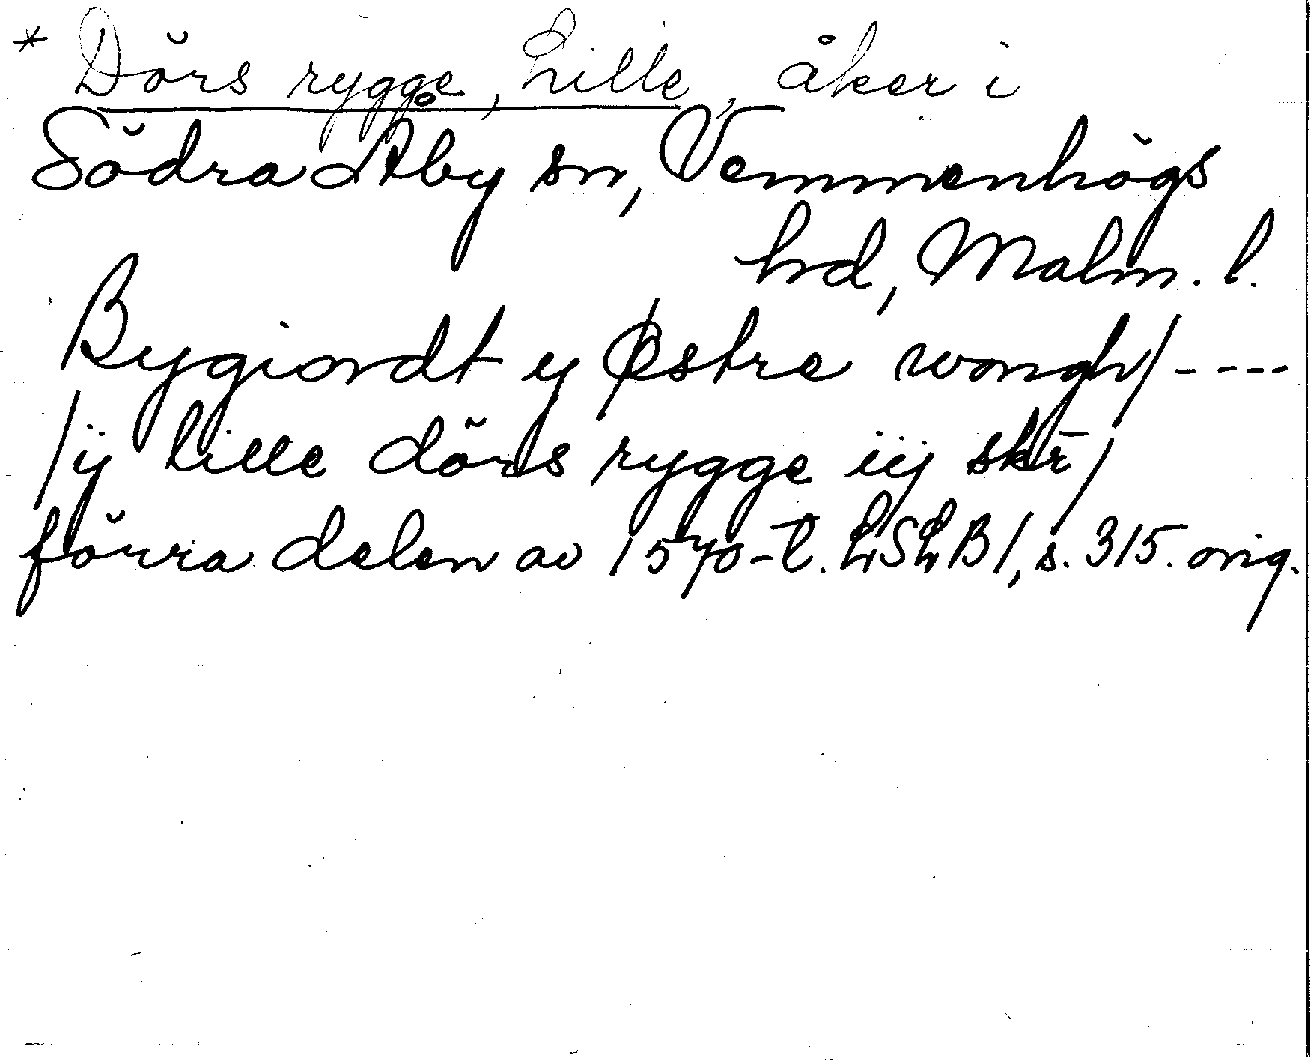 * Dörs rygge, Lille, åker i
Södra Åby sn, Vemmenhögs
hd, Malm. l.
Bygiordt y Østre wongh/----
/ÿ lille dörs rygge iij skr̄/
förra delen av 1570-t. LSLB1, s. 315. orig.